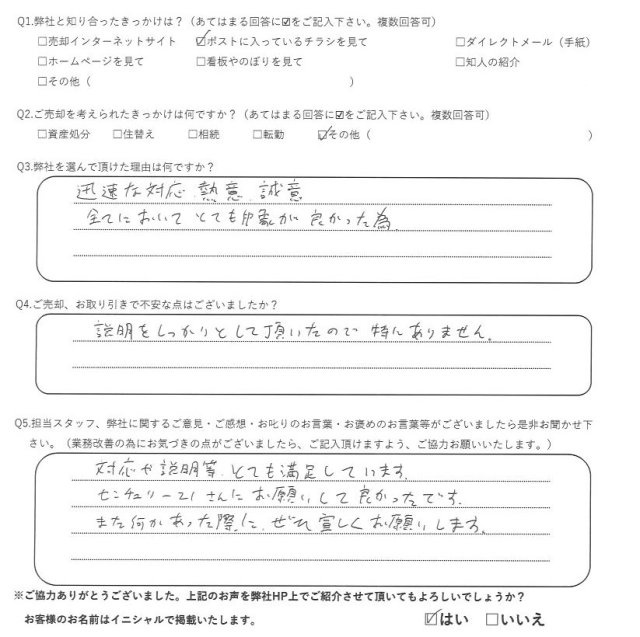 Q1.弊社と知り合ったきっかけは？（あてはまる回答に☑をご記入下さい。複数回答可）
□売却インターネットサイト ☑ポストに入っているチラシを見て □ダイレクトメール（手紙）
□ホームページを見て □看板やのぼりを見て □知人の紹介
□その他（ ）
Q2.ご売却を考えられたきっかけは何ですか？（あてはまる回答に☑をご記入下さい。複数回答可）
□資産処分 □住替え □相続 □転勤 ☑その他（ ）
Q3.弊社を選んで頂けた理由は何ですか？
迅速な対応 熱意 誠意
全てにおいて とても印象が 良かった為.
Q4.ご売却、お取り引きで不安な点はございましたか？
説明をしっかりとして頂いたので 特にありません。
Q5.担当スタッフ、弊社に関するご意見・ご感想・お叱りのお言葉・お褒めのお言葉等がございましたら是非お聞かせ下
さい。（業務改善の為にお気づきの点がございましたら、ご記入頂けますよう、ご協力お願いいたします。）
対応や説明等、とても満足しています.
センチュリー21さんに お願いして良かったです.
また何かあった際に、ぜひ宜しくお願いします。
※ご協力ありがとうございました。上記のお声を弊社HP上でご紹介させて頂いてもよろしいでしょうか？
お客様のお名前はイニシャルで掲載いたします。 ☑はい □いいえ